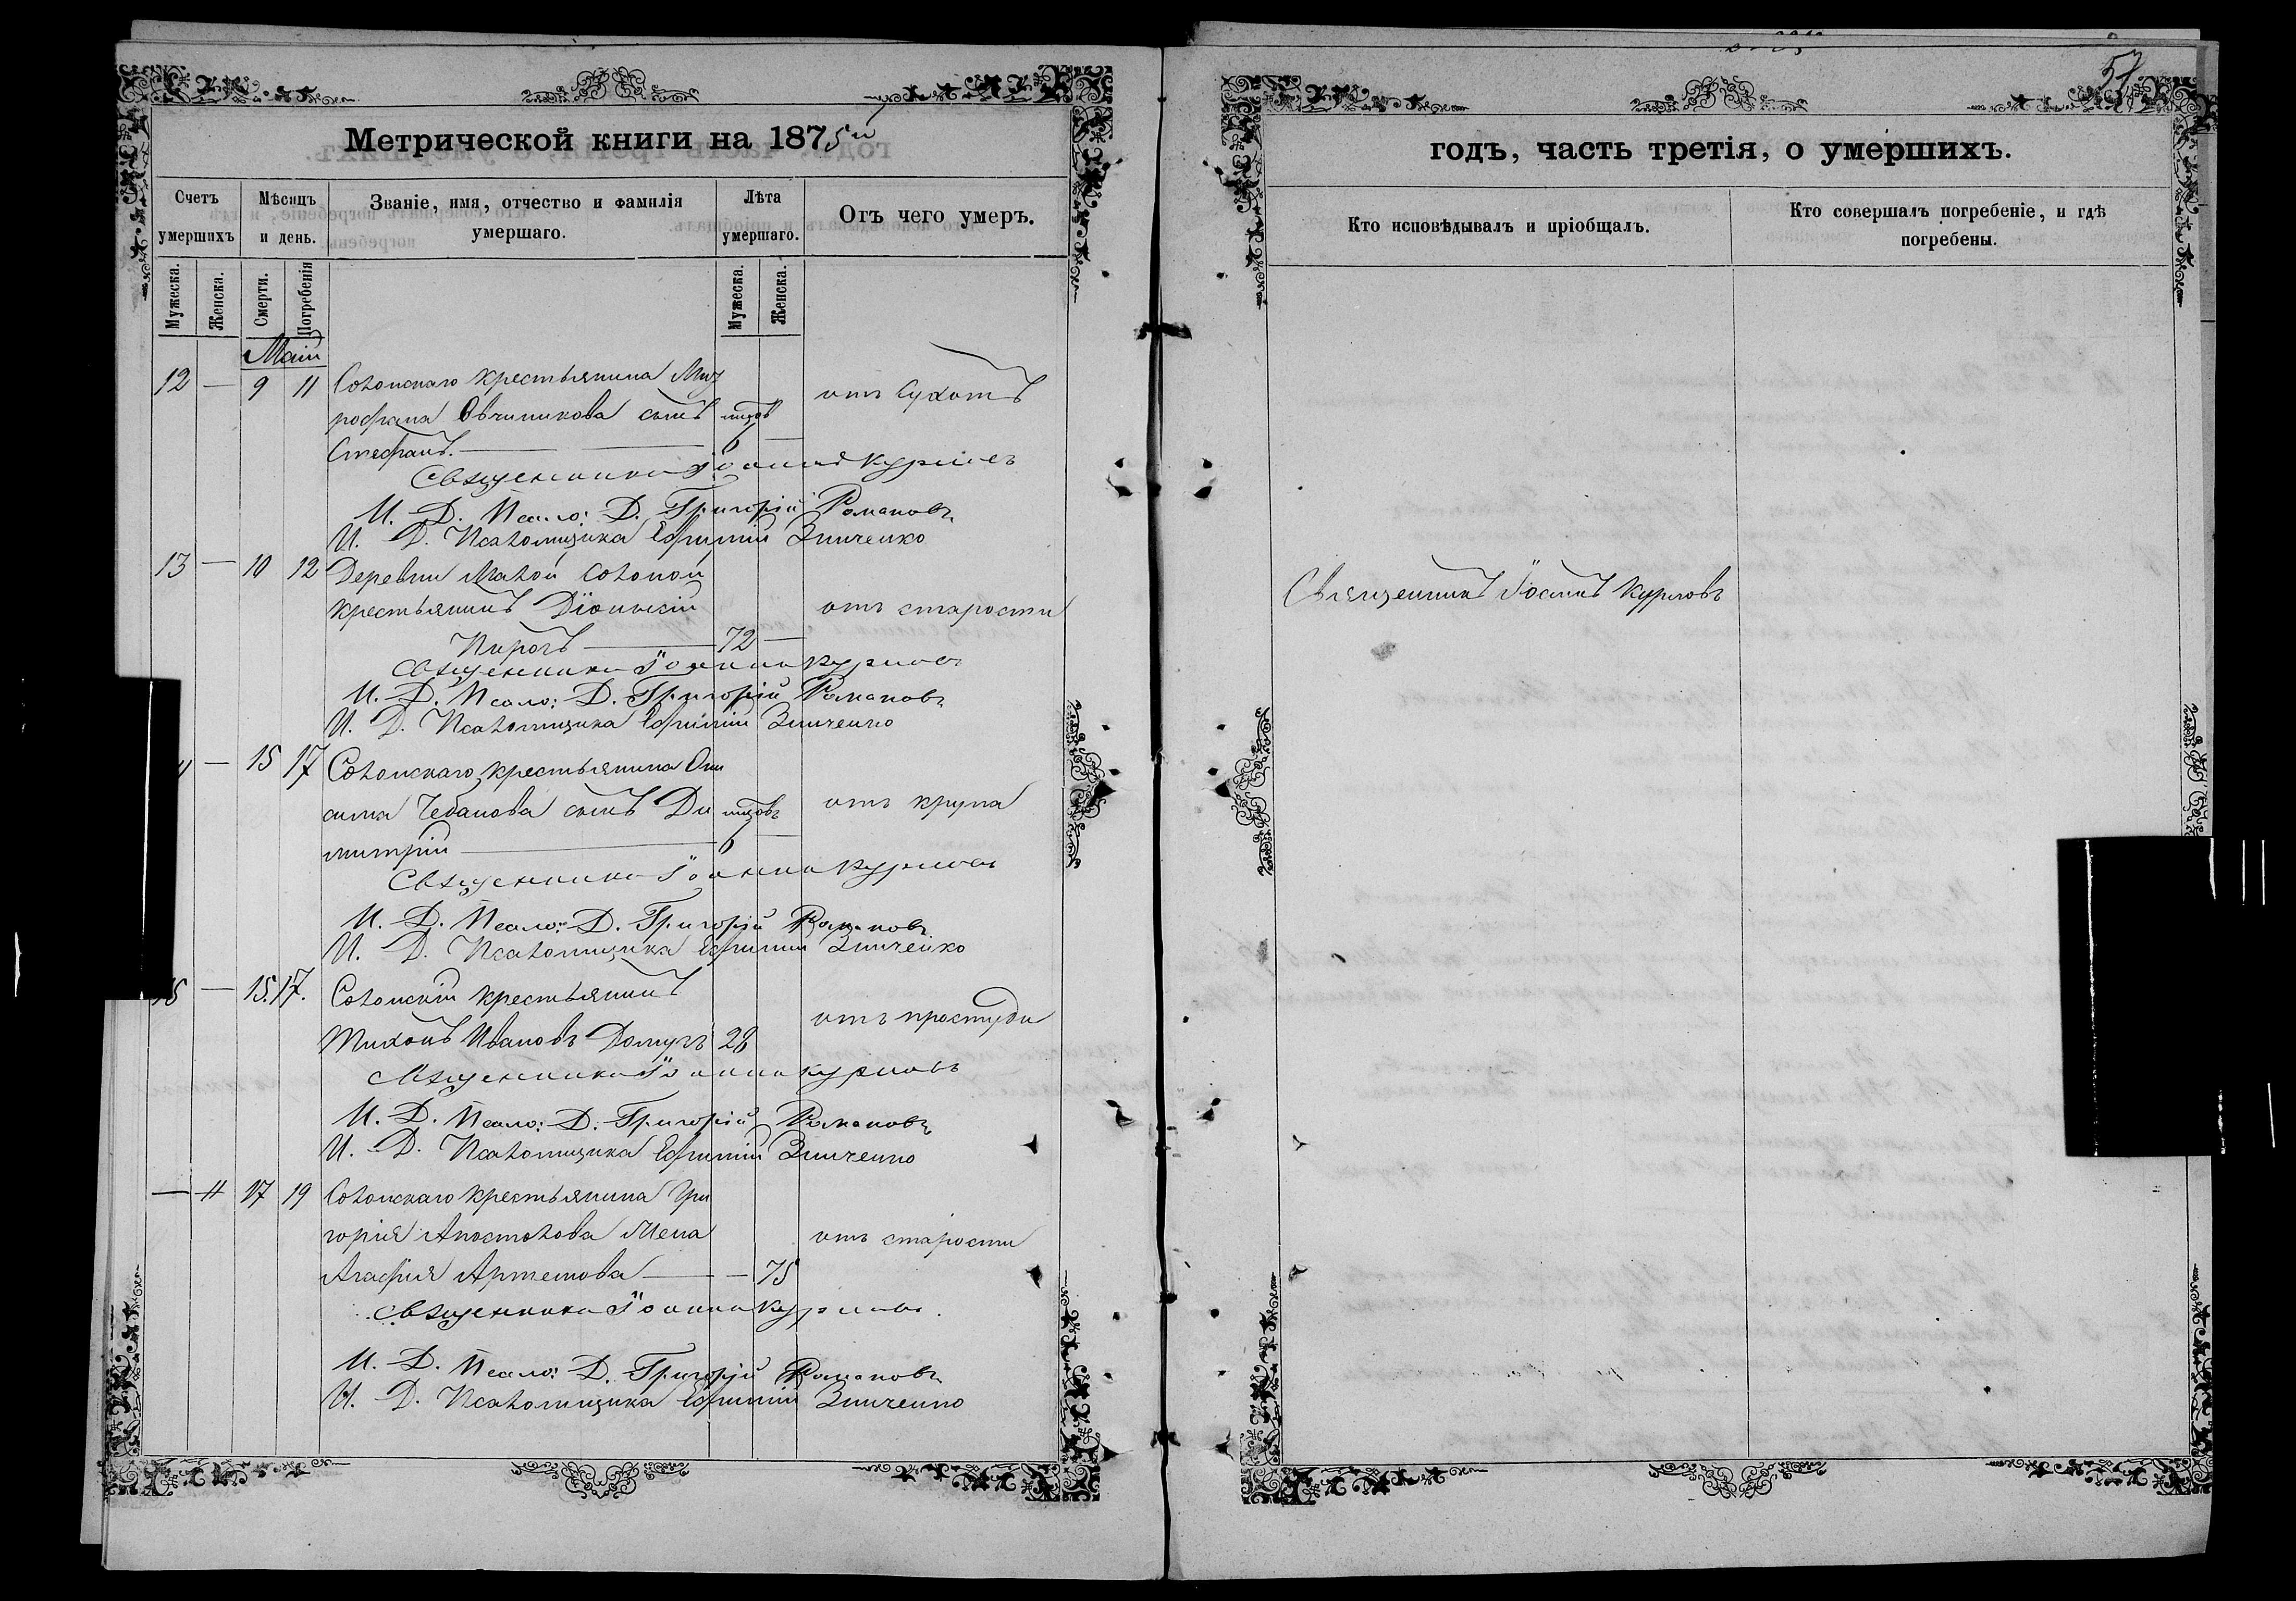 Метрической книги на 1875й
Счетъ умершихъ
Мѣсяцъ и день.
Званіе, имя, отчество и фамилія умершаго.
Лѣта умершаго.
Отъ чего умеръ.
Мужеска.
Женска.
Смерти.
Погребенія
Мужеска.
Женска.
Маій
12 — 9 11 Солонскаго крестьянина Мит
рофана Овчиникова сынъ отъ сухотъ
Стефанъ. — 6 —
Священникъ Іоаннъ Курловъ
И. Д. Псало: Д. Григорій Романовъ
И. Д. Псаломщика Ефимій Зинченко
13 — 10 12 Деревни Малой Солоной
крестьянинъ Діонисій отъ старости
Пирогъ — 72 —
Священникъ Іоаннъ Курловъ
И. Д. Псало: Д. Григорій Романовъ
И. Д. Псаломщика Ефимій Зинченко
— 15 17 Солонскаго крестьянина Они
сима Чебанова сынъ Ди отъ крупа
митрій — 6 —
Священникъ Іоаннъ Курловъ
И. Д. Псало: Д. Григорій Романовъ
И. Д. Псаломщика Ефимій Зинченко
15 — 15. 17. Солонскій крестьянинъ
Тихонъ Ивановъ 28 отъ простуди
Священникъ Іоаннъ Курловъ
И. Д. Псало: Д. Григорій Романовъ
И. Д. Псаломщика Ефимій Зинченко
— 4 17 19 Солонскаго крестьянина Гри
горія Апостолова жена отъ старости
Агафія Артемова — — 75
Священникъ Іоаннъ Курловъ.
И. Д. Псало: Д. Григорій Романовъ
И. Д. Псаломщика Ефимій Зинченко
57
годъ, часть третія, о умершихъ.
Кто исповѣдывалъ и пріобщалъ.
Кто совершалъ погребеніе, и гдѣ погребены.
Священникъ Іоаннъ Курловъ